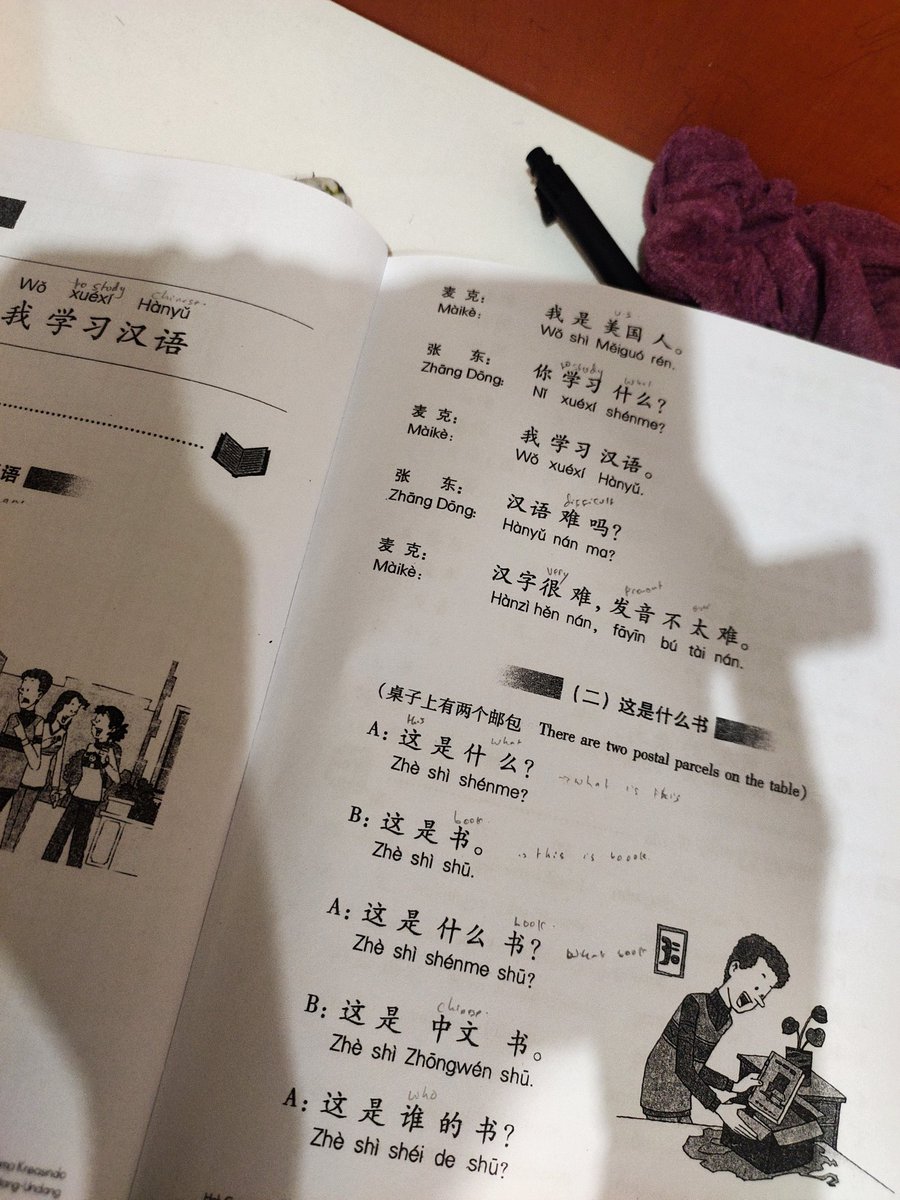 to study Chinese.
Wǒ xuéxí Hànyǔ
我 学习 汉语
语
us
麦 克： 我 是 美国 人。
Màikè： Wǒ shì Měiguó rén.
to study what
张 东： 你 学习 什么？
Zhāng Dōng： Nǐ xuéxí shénme?
麦 克： 我 学习 汉语。
Màikè： Wǒ xuéxí Hànyǔ.
difficult
张 东： 汉语 难 吗？
Zhāng Dōng： Hànyǔ nán ma?
very
麦 克： 汉字 很 难，发音 不 太 难。
Màikè： Hànzì hěn nán， fāyīn bú tài nán.
（二）这是什么书
（桌子上有两个邮包 There are two postal parcels on the table）
this what
A：这 是 什 么？ → what is this
Zhè shì shénme?
book.
B：这 是 书。 this is
Zhè shì shū.
book.
A：这 是 什么 书？ what book
Zhè shì shénme shū?
B：这 是 中文 书。
Zhè shì Zhōngwén shū.
who
A：这 是 谁 的 书？
Zhè shì shéi de shū?